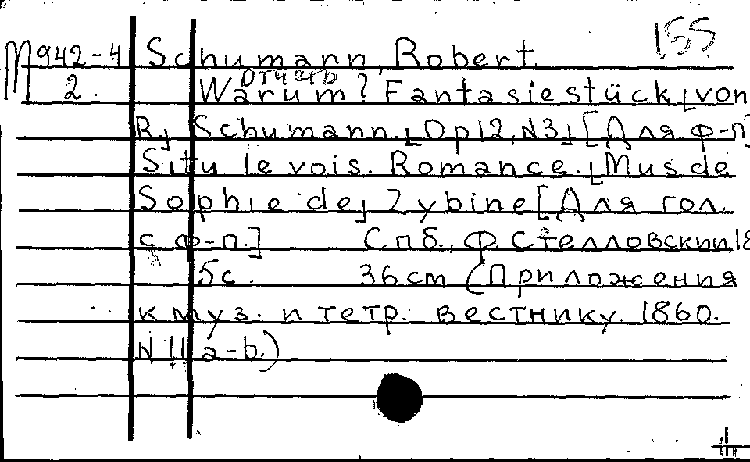 155
М942-4 Schumann, Robert.
Отчегъ
2. Warum? Fantasiestück [von
R.] Schumann. [Op 12, N3] [Для ф-п]
Si tu le vois. Romance. [Mus de
Sophie de] Zybine [Для гол.
с ф-п.] Спб., Ф. Стелловский 18
5с. 36cm (Приложения
к муз. и тетр. вестнику. 1860.
N 11 a-b.)